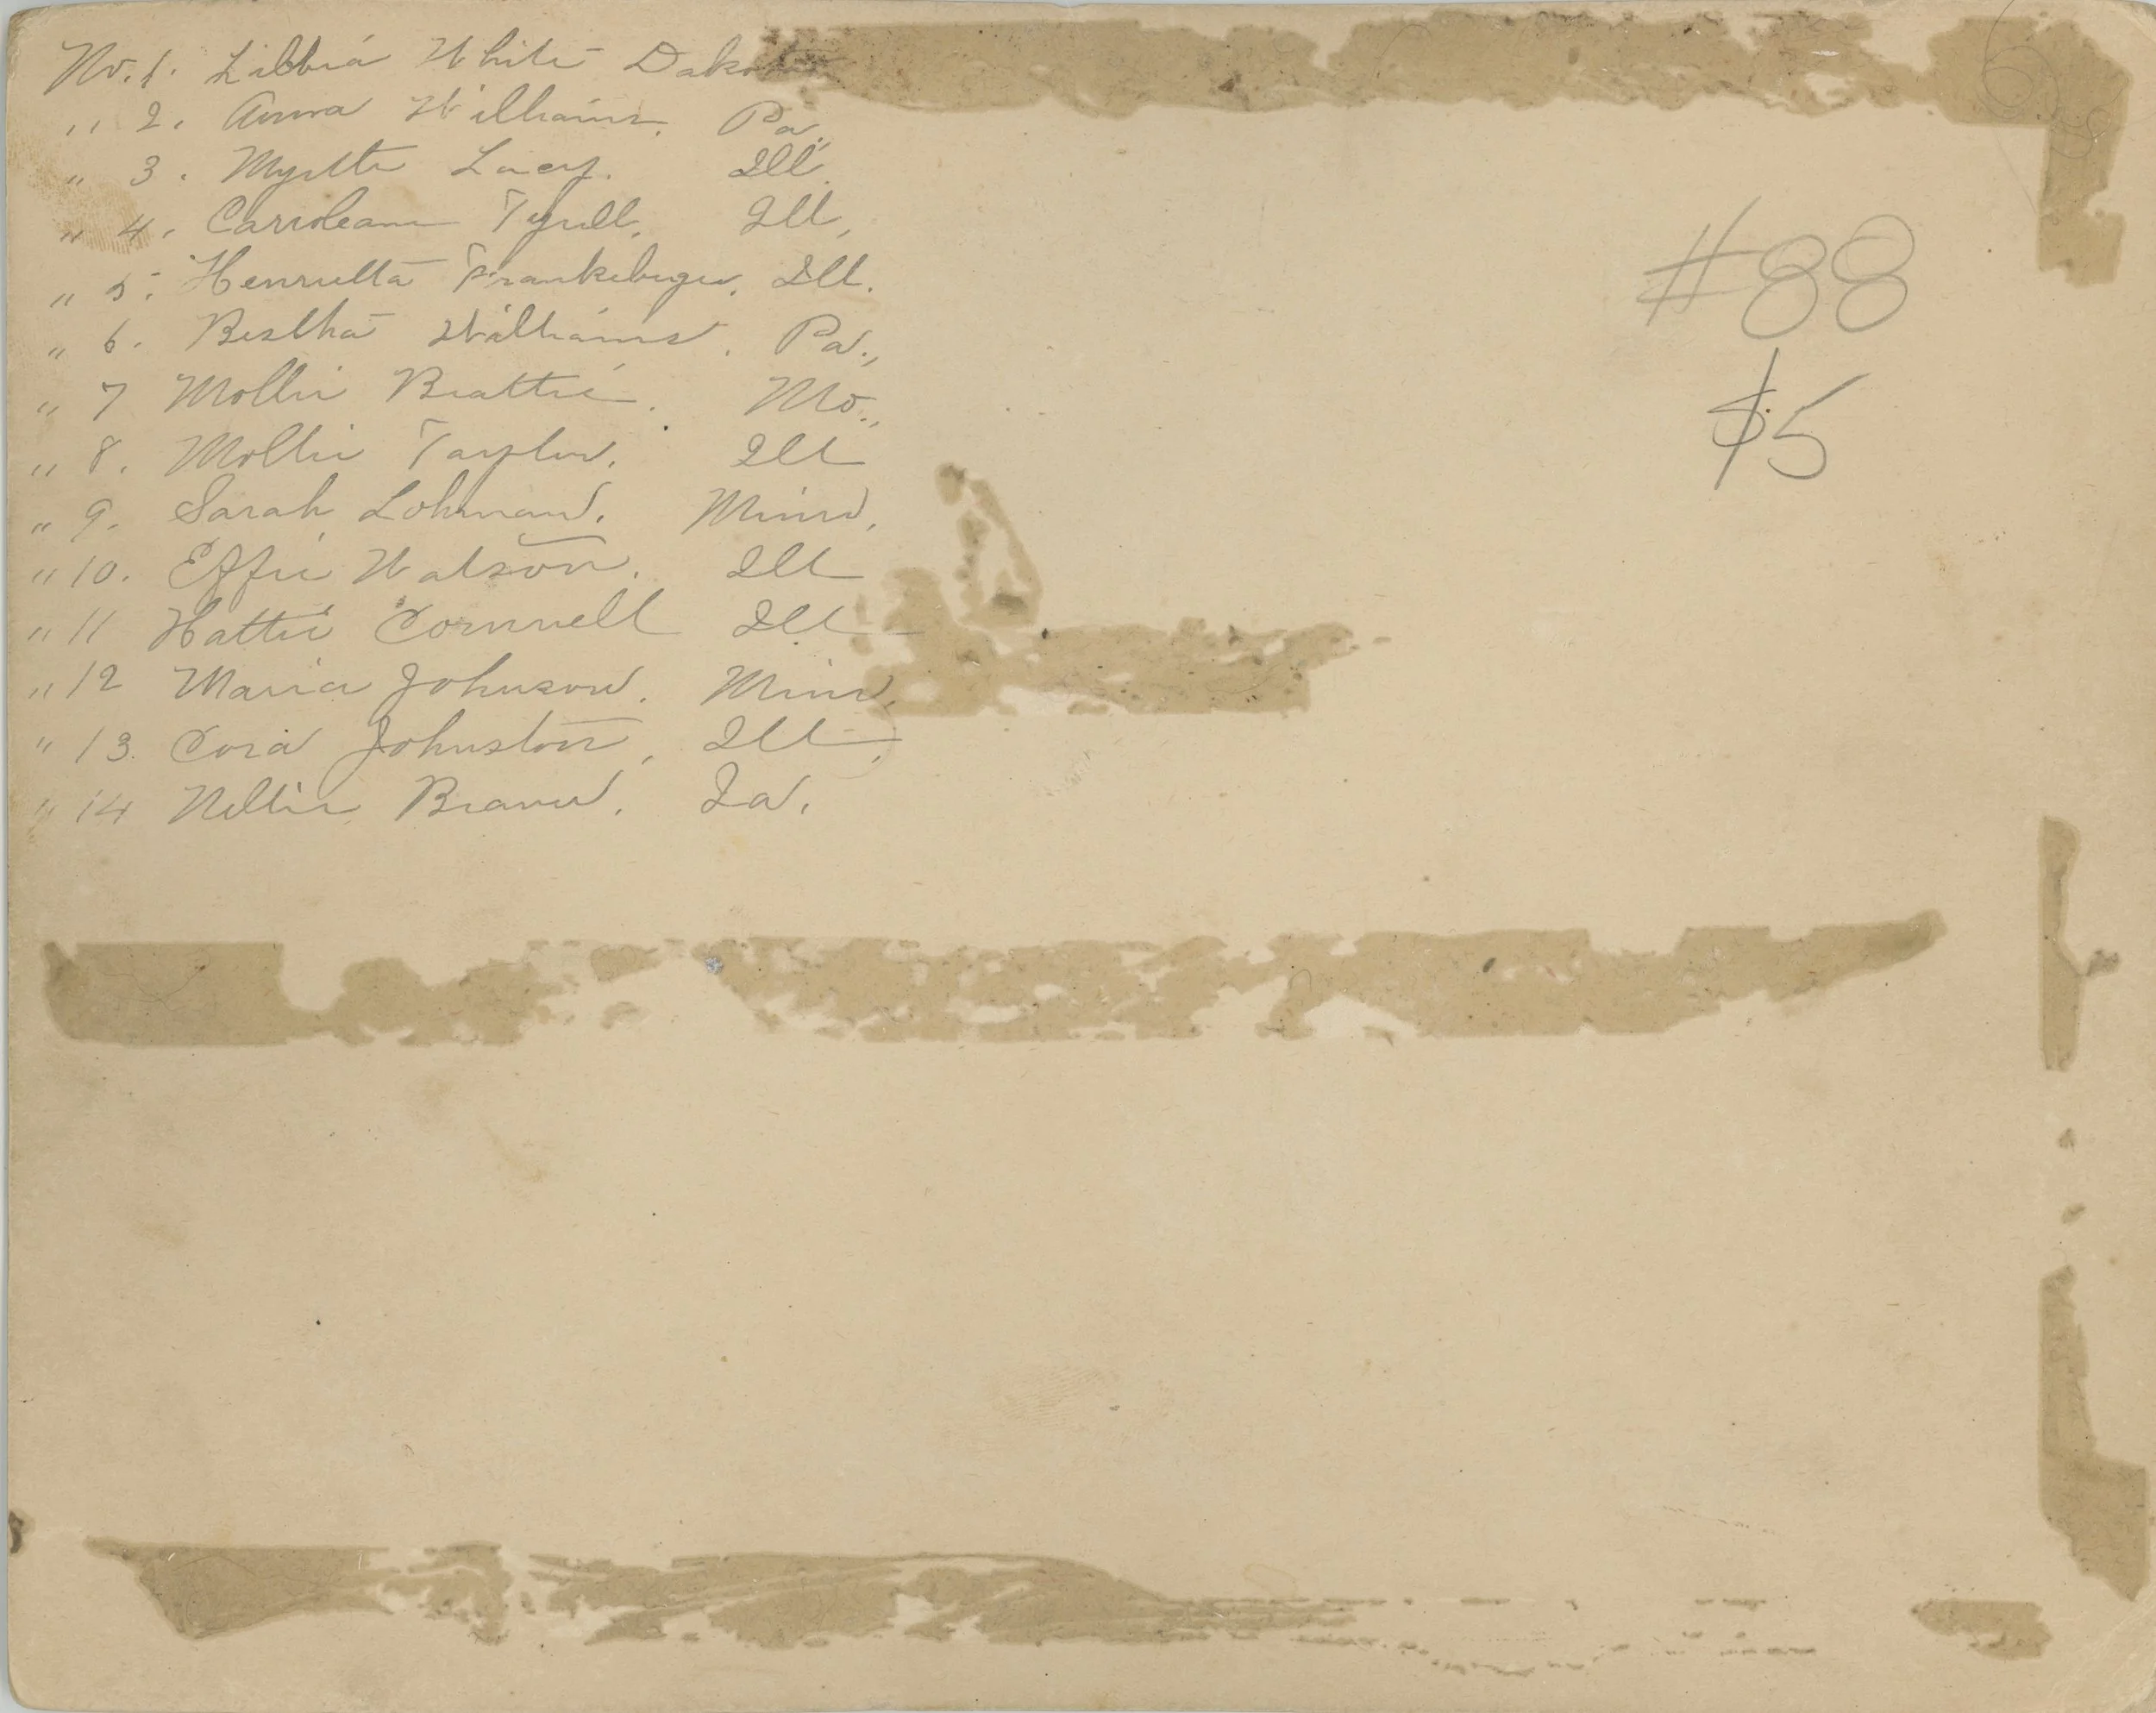 No. 1. Libbie White Dakota
" 2. Anna Williams. Pa.
" 3. Myrtle Lacey. Ill.
" 4. Carroleann Tyrell. Ill.
" 5. Henrietta Frankeberger. Ill.
" 6. Bertha Williams. Pa.
" 7 Mollie Beattie. Mo.
" 8. Mollie Taylor. Ill
" 9. Sarah Lohman. Minn.
" 10. Effie Watson. Ill
" 11 Hattie Cornwell Ill
" 12 Maria Johnson. Minn.
" 13. Cora Johnston, Ill.
" 14 Nellie Brown. Ia.
#88
$5